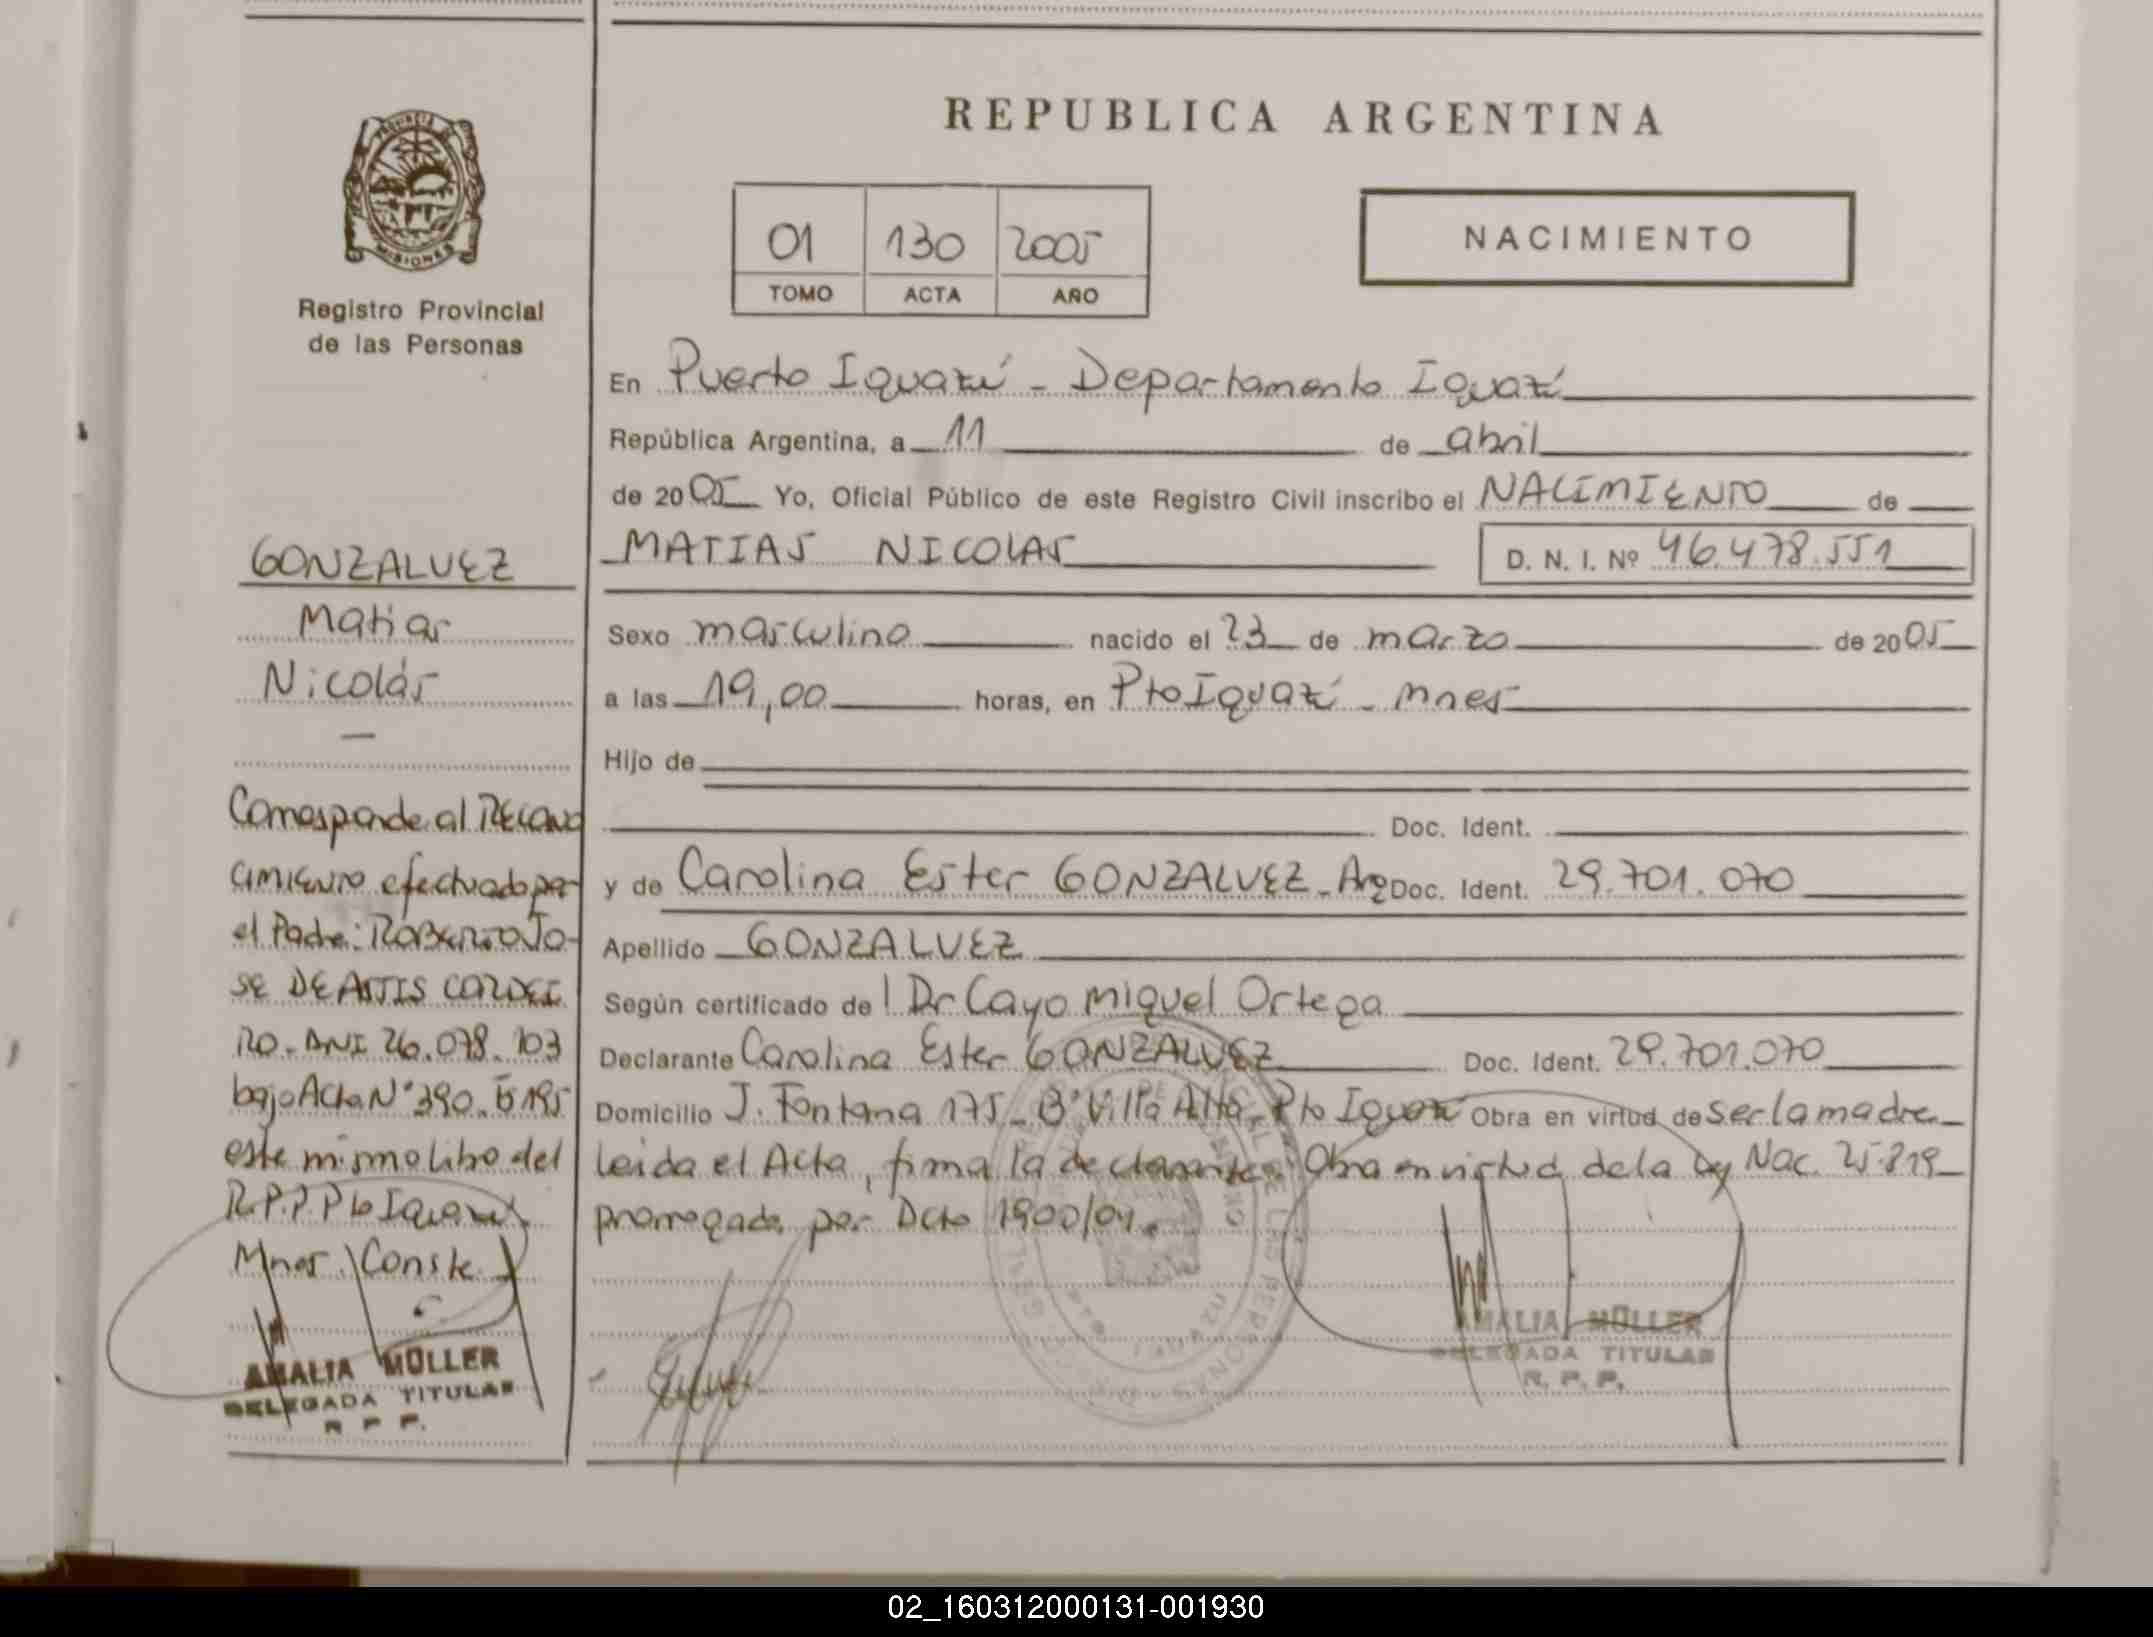 REPUBLICA ARGENTINA
PROVINCIA DE
MISIONES
Registro Provincial
de las Personas
01 130 2005
TOMO ACTA AÑO
NACIMIENTO
En Puerto Iguazú - Departamento Iguazú
República Argentina, a 11 de abril
de 2005 Yo, Oficial Público de este Registro Civil inscribo el NACIMIENTO de
MATIAS NICOLAS D. N. I. Nº 46.478.551
Sexo masculino nacido el 23 de marzo de 2005
a las 19,00 horas, en Pto Iguazú - Mnes
Hijo de
Doc. Ident.
y de Carolina Ester GONZALVEZ - Arg Doc. Ident. 29.701.070
Apellido GONZALVEZ
Según certificado del Dr Cayo Miguel Ortega
Declarante Carolina Ester GONZALVEZ Doc. Ident. 29.701.070
Domicilio J. Fontana 175 - Bº Villa Alta - Pto Iguazú Obra en virtud de ser la madre
leida el Acta, firma la declarante. Obra en virtud de la ley Nac. 25.819
prorrogada por Dcto 1900/04.
AMALIA MÜLLER
DELEGADA TITULAR
R. P. P.
GONZALVEZ
Matias
Nicolás
Corresponde al RECONO
CIMIENTO efectuado por
el Padre: ROBERTO JO-
SE DE ASTIS CORDEI
RO - DNI 26.078.103
bajo Acta Nº 390
este mismo libro del
R.P.P. Pto Iguazú
Mnes. Conste.
AMALIA MÜLLER
DELEGADA TITULAR
R P P.
02_160312000131-001930